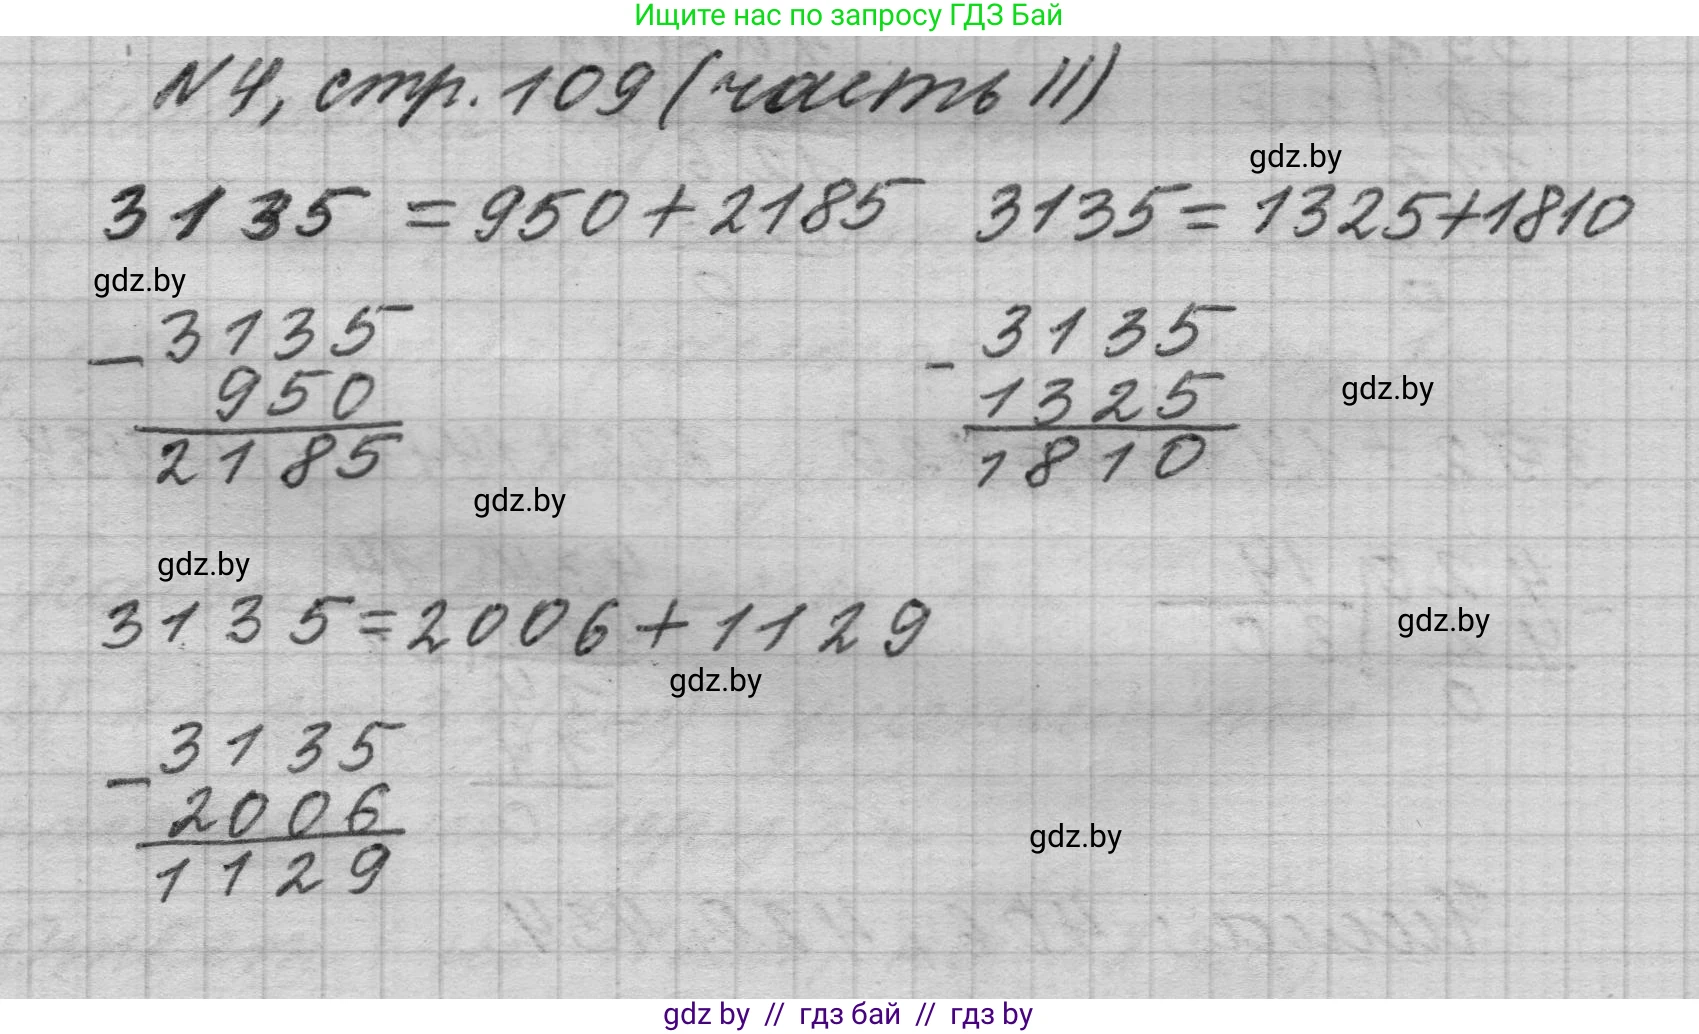 Ищите нас по запросу ГДЗ Бай
N4, стр. 109 (часть II)
gdz.by
3135 = 950 + 2185 3135 = 1325 + 1810
gdz.by
3135 3135
- -
950 1325
gdz.by
2185 1810
gdz.by
gdz.by
3135 = 2006 + 1129
gdz.by
gdz.by
3135
-
2006
gdz.by
1129
gdz.by // гдз бай // гдз by